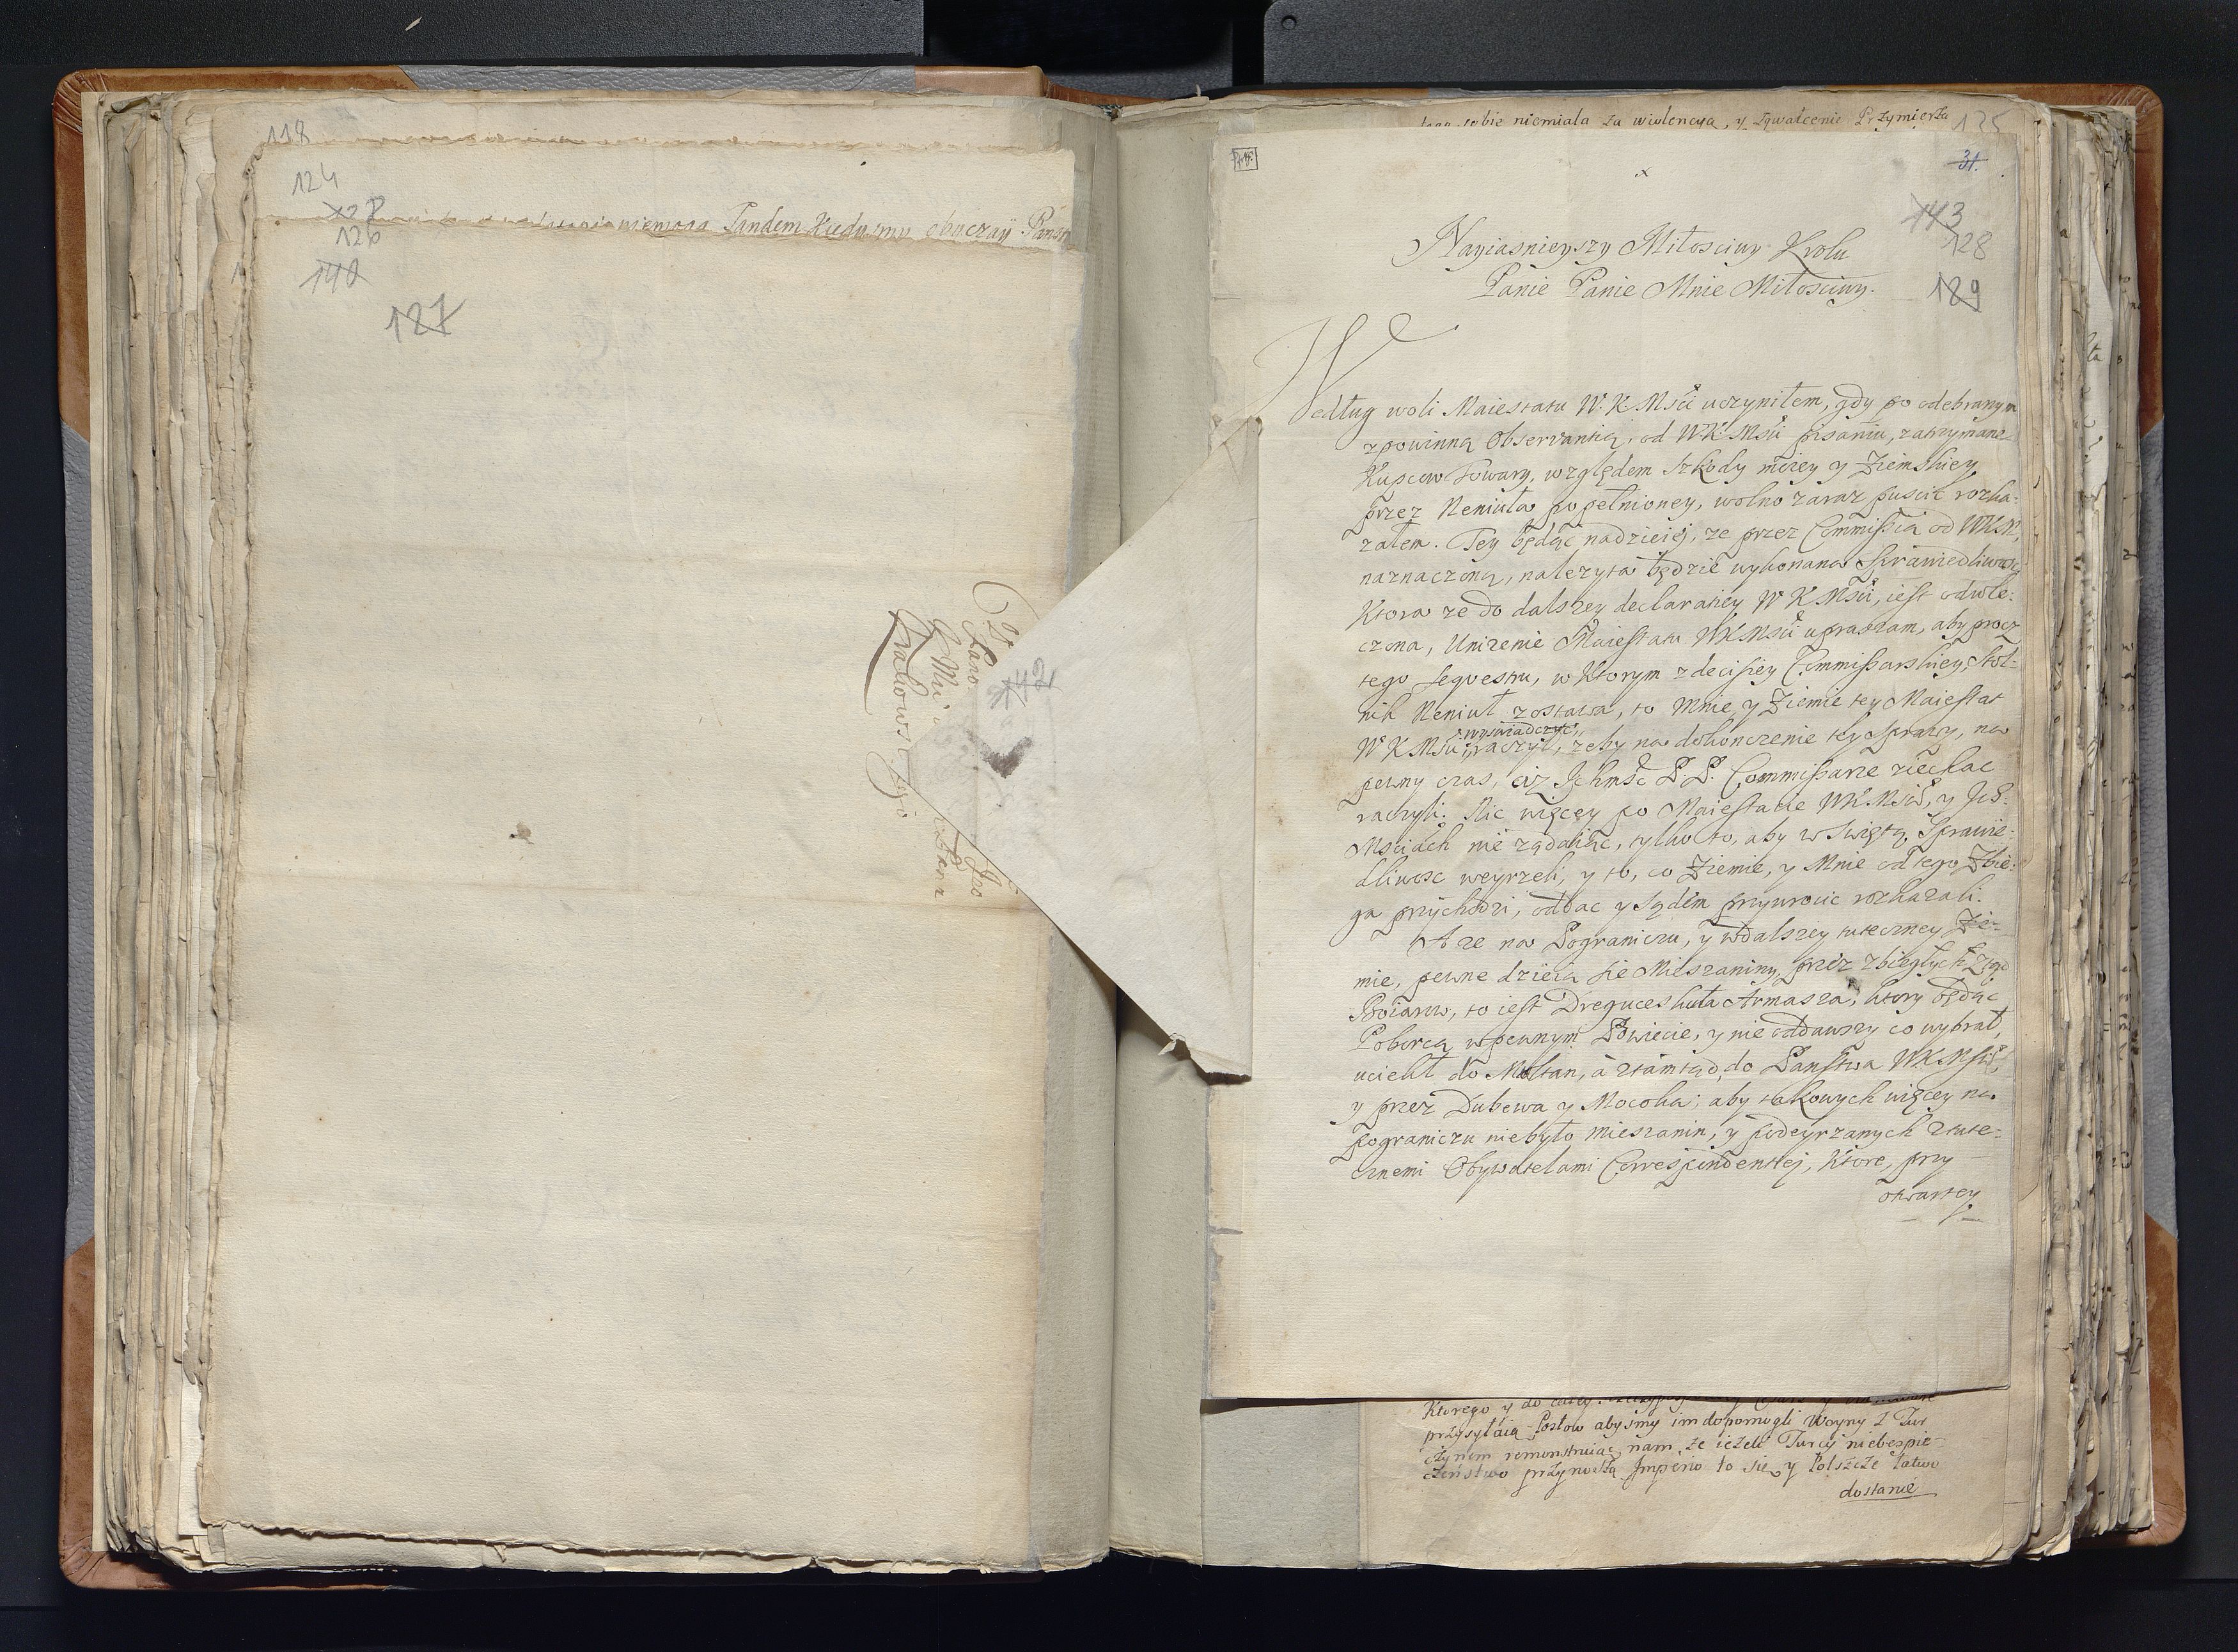 118
124
126
140
127
niemogą Tandem Kiedy mu
Krakows
142
tego sobie niemiala za wiolencyą, y zgwałcenie Przymierza
125
31.
143
128
129
Nayiasnieyszy Miłosciwy Krolu
Panie Panie Mnie Miłosciwy.
Według woli Maiestatu W. K Msći uczyniłem, gdy po odebranym
z powinną Observantią, od WK Msći pisaniu, zatrzymane
Kupcow Towary, względem szkody moiey y Ziemskiey
przez Neniuła popełnioney, wolno zaraz puscić rozka-
załem. Tey będąc nadzieię, ze przez Commissią od WKM,
naznaczoną, nalezyta będzie wykonana Sprawiedliwość
Ktora ze do dalszey declaratiey W K Msći, iest odwle-
czona, Unizenie Maiestatu WK Msći upraszam, aby procz
tego sequestru, w Ktorym z decisiey Commissarskiey, Stol-
nik Neniuł zostawa, to Mnie y Ziemie tey Maiestat
wyswiadczyć
W K Msći raczył, zeby na dokonczenie tey sprawy, na
pewny czas, ciz Ichmsć P.P. Commissarze ziechac
raczyli. Nic więcey po Maiestacie WK Msći, y Ich
Msciach nie ządaiąc, tylko to, aby w Swiętą Sprawie-
dliwosc weyrzeli, y to, co Ziemie, y Mnie od tego Zbie-
ga przychodzi, oddac y sądem przywrocic rozkazali.
A ze na Pograniczu, y w dalszey tuteczney Zie-
mie, pewne dzieią sie Mieszaniny, przez zbiegłych ztąd
Boiarow, to iest Dreguceskuła Armasza, ktory będąc
Poborcą w pewnym Powiecie, y nie oddawszy co wybrał,
uciekł do Multan, a ztamtąd, do Panstwa WK Msći,
y przez Dubewa y Mocoka; aby takowych więcey na
pograniczu niebyło mieszanin, y podeyrzanych z tute-
cznemi Obywatelami Correspondentiej, Ktore, przy
otwartey
Ktorego y do całey
przysyłaią Posłow abysmy im dopomogli Woyny z Tur
czynem remonstruiąc nam, ze iezeli Turcy niebespie-
czeństwo przynoszą Imperio to się y Polszcze łatwo
dostanie